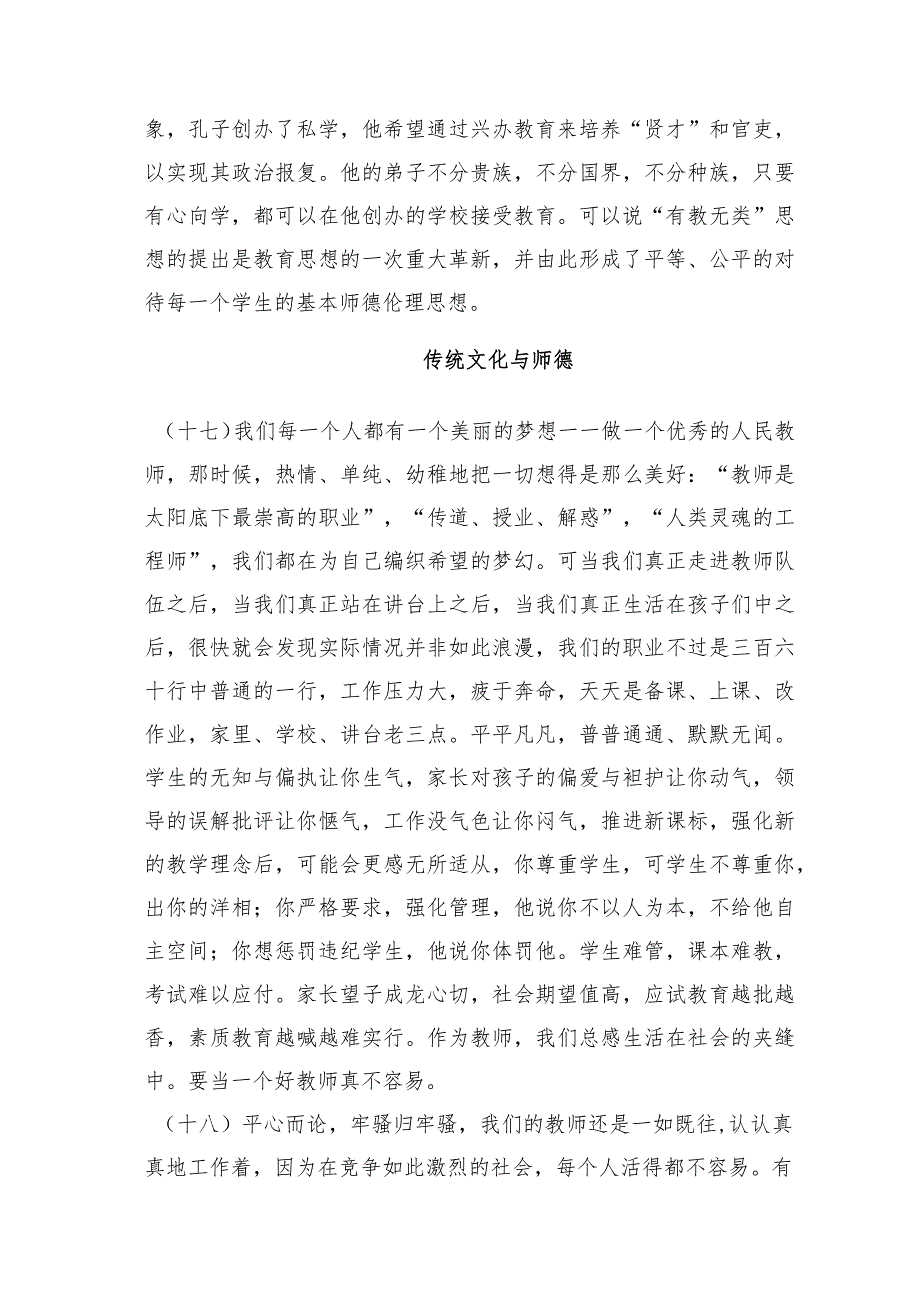 象，孔子创办了私学，他希望通过兴办教育来培养“贤才”和官吏，
以实现其政治报复。他的弟子不分贵族，不分国界，不分种族，只要
有心向学，都可以在他创办的学校接受教育。可以说“有教无类”思
想的提出是教育思想的一次重大革新，并由此形成了平等、公平的对
待每一个学生的基本师德伦理思想。
传统文化与师德
（十七)我们每一个人都有一个美丽的梦想一一做一个优秀的人民教
师，那时候，热情、单纯、幼稚地把一切想得是那么美好：“教师是
太阳底下最崇高的职业”，“传道、授业、解惑”，“人类灵魂的工
程师”，我们都在为自己编织希望的梦幻。可当我们真正走进教师队
伍之后，当我们真正站在讲台上之后，当我们真正生活在孩子们中之
后，很快就会发现实际情况并非如此浪漫，我们的职业不过是三百六
十行中普通的一行，工作压力大，疲于奔命，天天是备课、上课、改
作业，家里、学校、讲台老三点。平平凡凡，普普通通、默默无闻。
学生的无知与偏执让你生气，家长对孩子的偏爱与袒护让你动气，领
导的误解批评让你惬气，工作没气色让你闷气，推进新课标，强化新
的教学理念后，可能会更感无所适从，你尊重学生，可学生不尊重你，
出你的洋相；你严格要求，强化管理，他说你不以人为本，不给他自
主空间；你想惩罚违纪学生，他说你体罚他。学生难管，课本难教，
考试难以应付。家长望子成龙心切，社会期望值高，应试教育越批越
香，素质教育越喊越难实行。作为教师，我们总感生活在社会的夹缝
中。要当一个好教师真不容易。
（十八）平心而论，牢骚归牢骚，我们的教师还是一如既往,认认真
真地工作着，因为在竞争如此激烈的社会，每个人活得都不容易。有